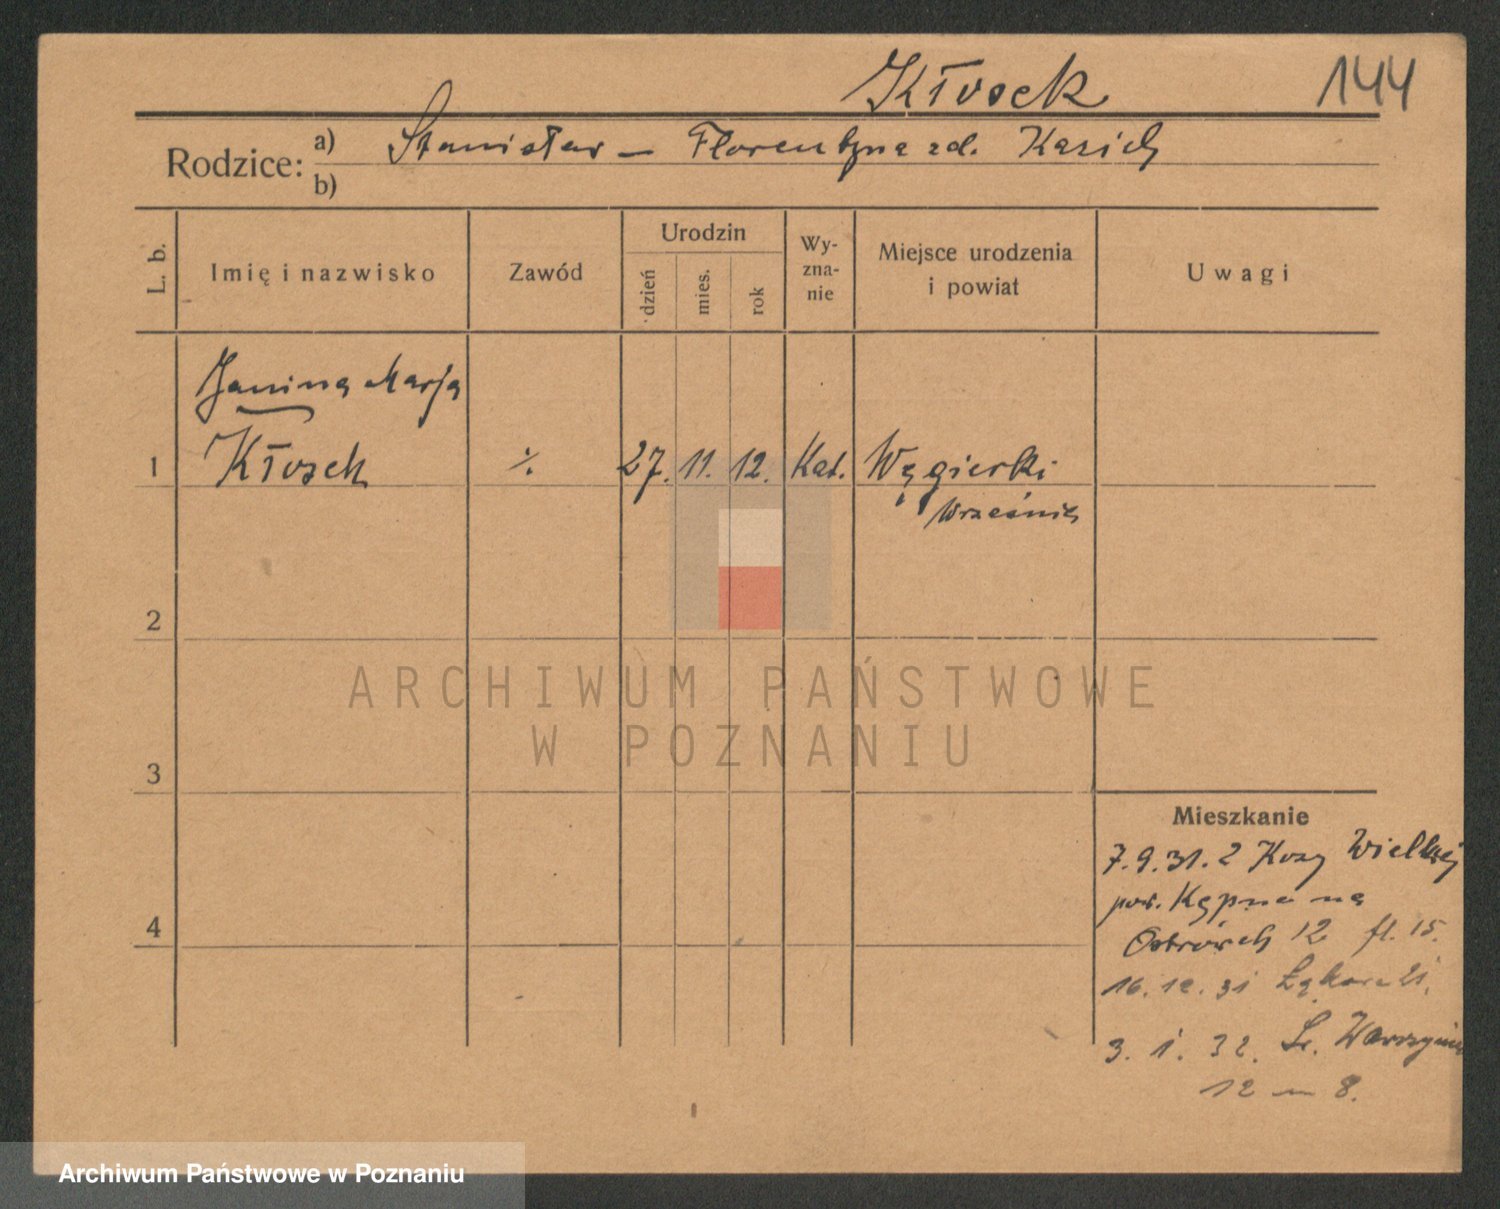 Kłosek 144
Rodzice: a) Stanisław – Florentyna zd. Kasich
b)
L. b. Imię i nazwisko Zawód Urodzin Wy-zna-nie Miejsce urodzenia i powiat Uwagi
dzień mies. rok
Janina Marja
1 Kłosek ·/. 27. 11. 12. Kat. Węgierki
Września
2
ARCHIWUM PAŃSTWOWE
W POZNANIU
3
Mieszkanie
7.9.31. z Kozy Wielkiej
pow. Kępna na
4
12
16.12.31
3. 1. 32. Św. Wawrzyńca
12 m 8.
Archiwum Państwowe w Poznaniu